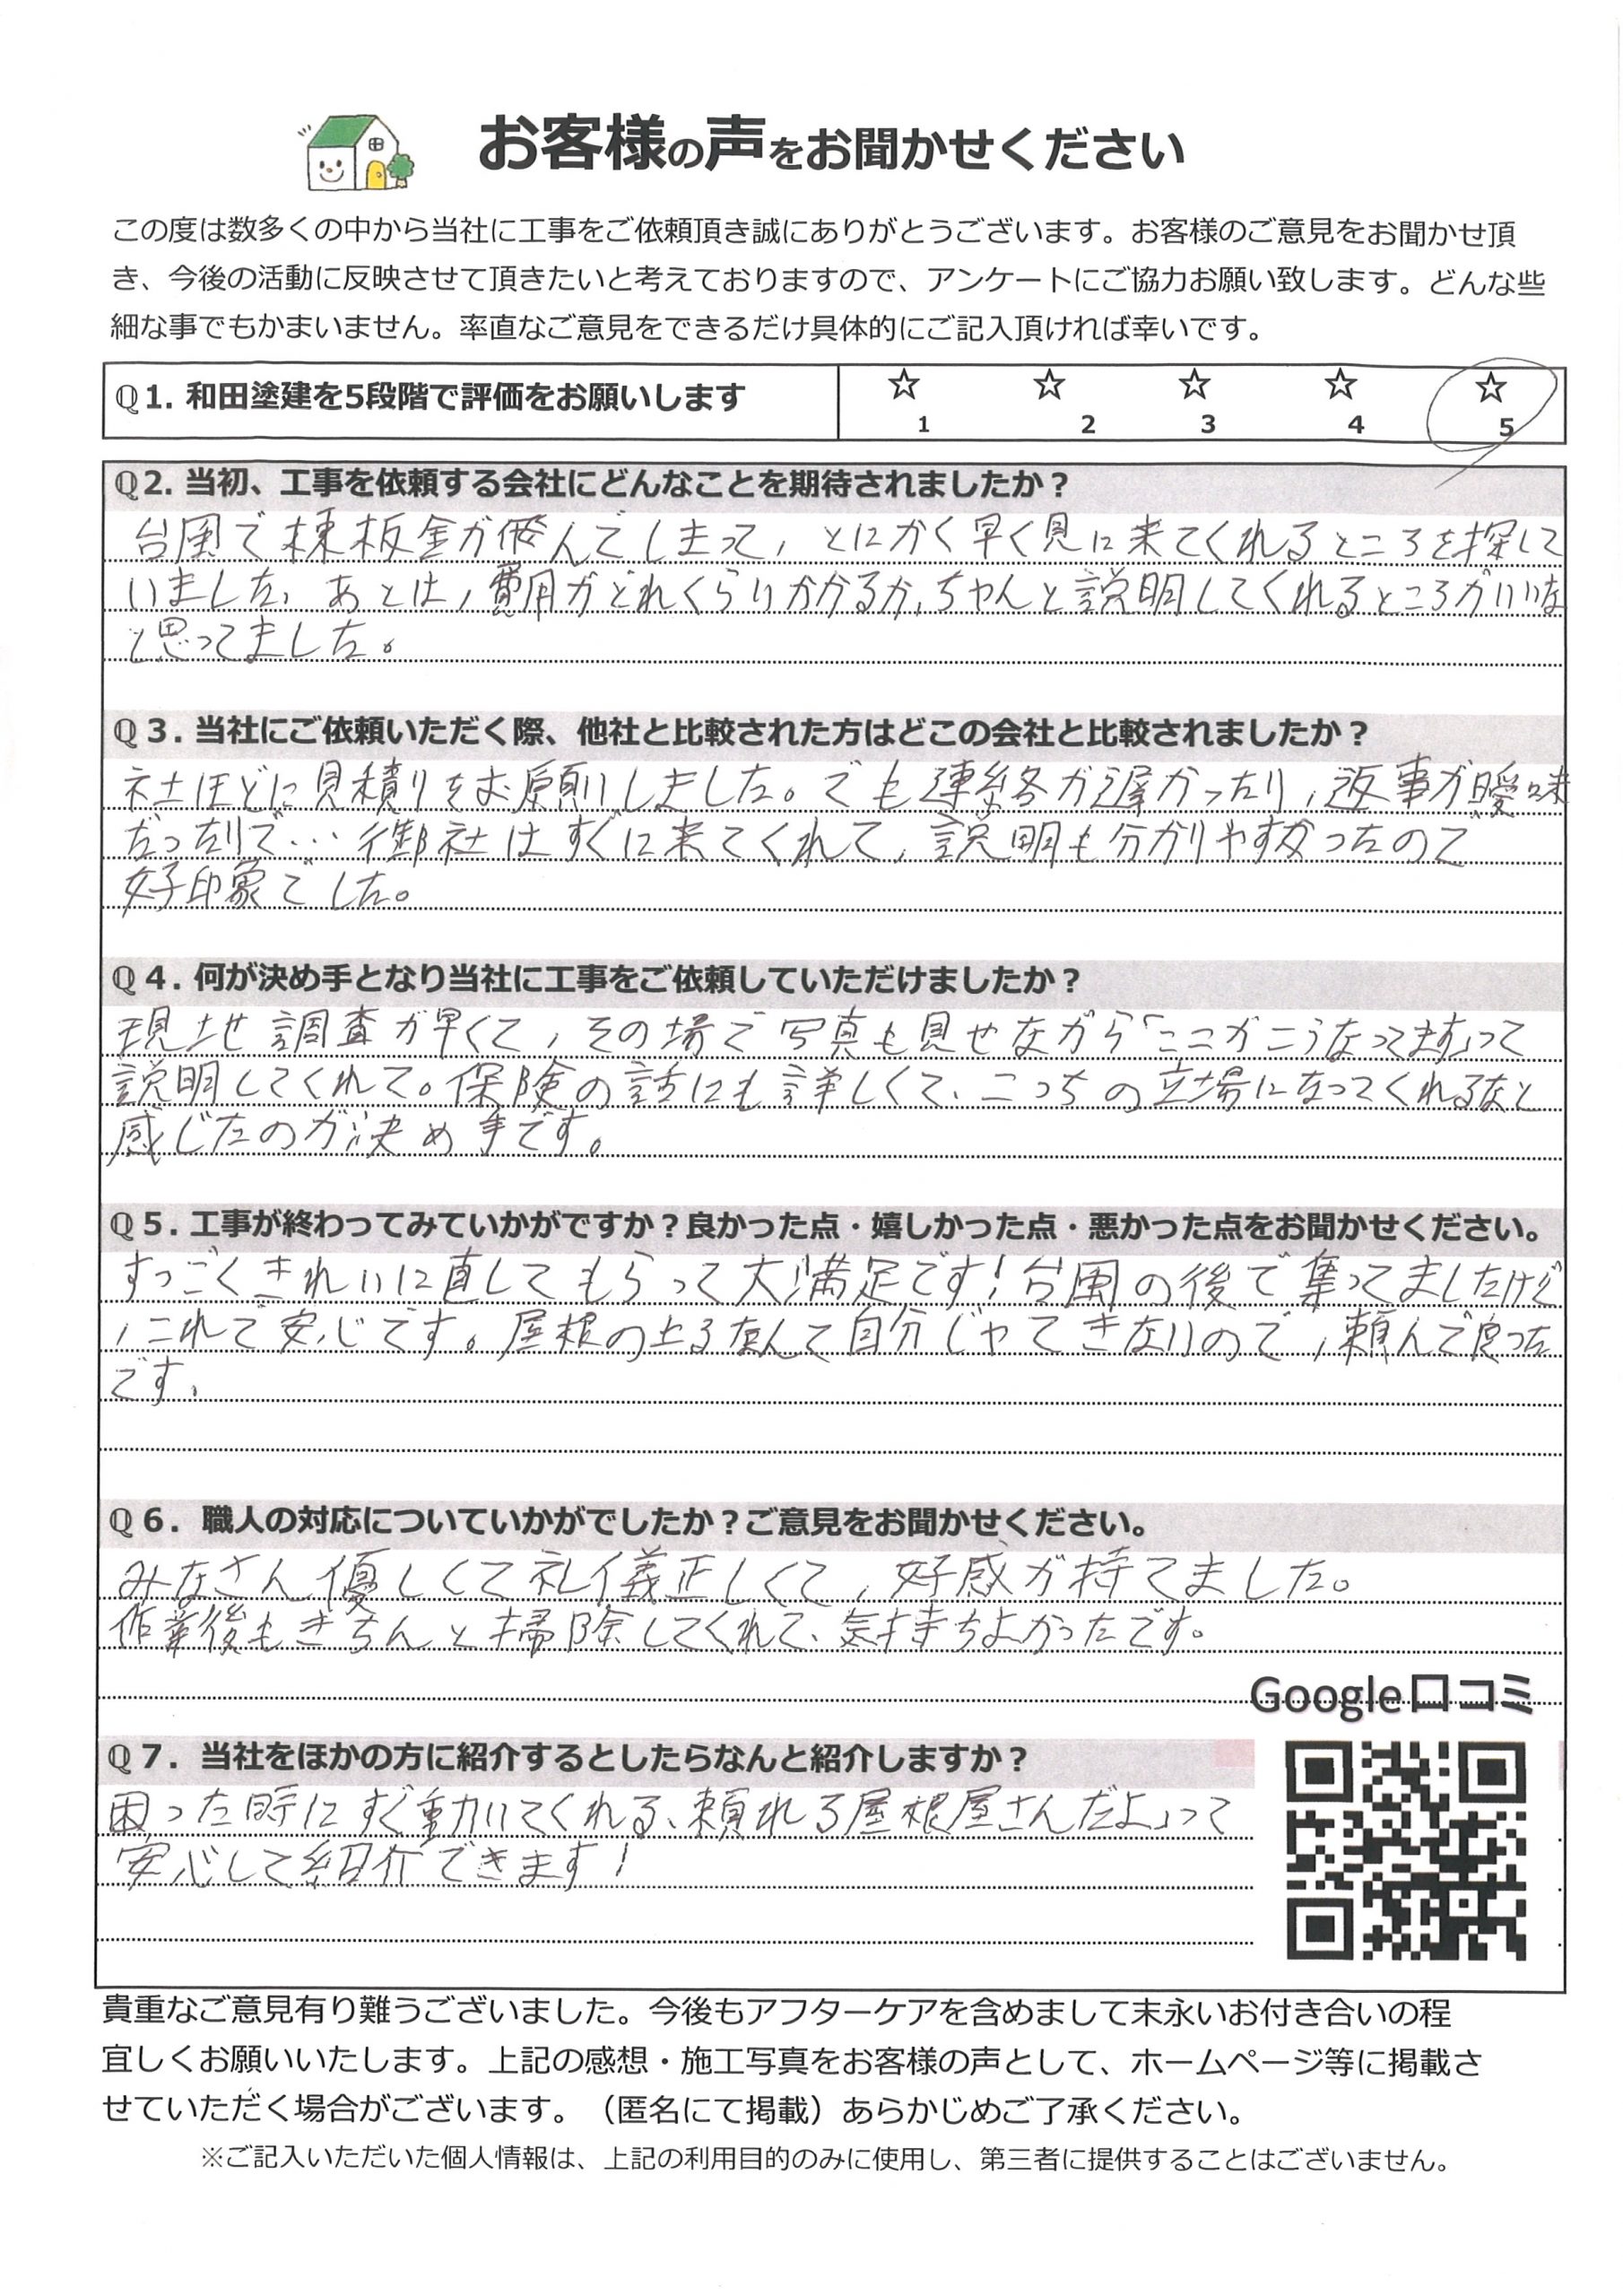 お客様の声をお聞かせください
この度は数多くの中から当社に工事をご依頼頂き誠にありがとうございます。お客様のご意見をお聞かせ頂
き、今後の活動に反映させて頂きたいと考えておりますので、アンケートにご協力お願い致します。どんな些
細な事でもかまいません。率直なご意見をできるだけ具体的にご記入頂ければ幸いです。
Q1. 和田塗建を5段階で評価をお願いします
☆ ☆ ☆ ☆ ☆
1 2 3 4 5
Q2. 当初、工事を依頼する会社にどんなことを期待されましたか？
台風で棟板金が飛んでしまって，とにかく早く見に来てくれるところを探して
いました。あとは，費用がどれくらいかかるか、ちゃんと説明してくれるところがいいな
と思ってました。
Q３. 当社にご依頼いただく際、他社と比較された方はどこの会社と比較されましたか？
社ほどに見積りをお願いしました。でも連絡が遅かったり，返事が曖昧
だったりで… 御社はすぐに来てくれて，説明も分かりやすかったので
好印象でした。
Q４. 何が決め手となり当社に工事をご依頼していただけましたか？
現地調査が早くて，その場で写真も見せながら「ここがこうなってます」って
説明してくれて。保険の話にも詳しくて、こっちの立場になってくれるなと
感じたのが決め手です。
Q５. 工事が終わってみていかがですか？良かった点・嬉しかった点・悪かった点をお聞かせください。
すっごくきれいに直してもらって大満足です！台風の後で集ってましたけど
，これで安心です。屋根の上るなんて自分じゃできないので，頼んで良った
です。
Q６. 職人の対応についていかがでしたか？ご意見をお聞かせください。
みなさん優しくて礼儀正しくて，好感が持てました。
作業後もきちんと掃除してくれて、気持ちよかったです。
Google口コミ
Q７. 当社をほかの方に紹介するとしたらなんと紹介しますか？
困った時にすぐ動いてくれる、頼れる屋根屋さんだよ」って
安心して紹介できます！
貴重なご意見有り難うございました。今後もアフターケアを含めまして末永いお付き合いの程
宜しくお願いいたします。上記の感想・施工写真をお客様の声として、ホームページ等に掲載さ
せていただく場合がございます。（匿名にて掲載）あらかじめご了承ください。
※ご記入いただいた個人情報は、上記の利用目的のみに使用し、第三者に提供することはございません。